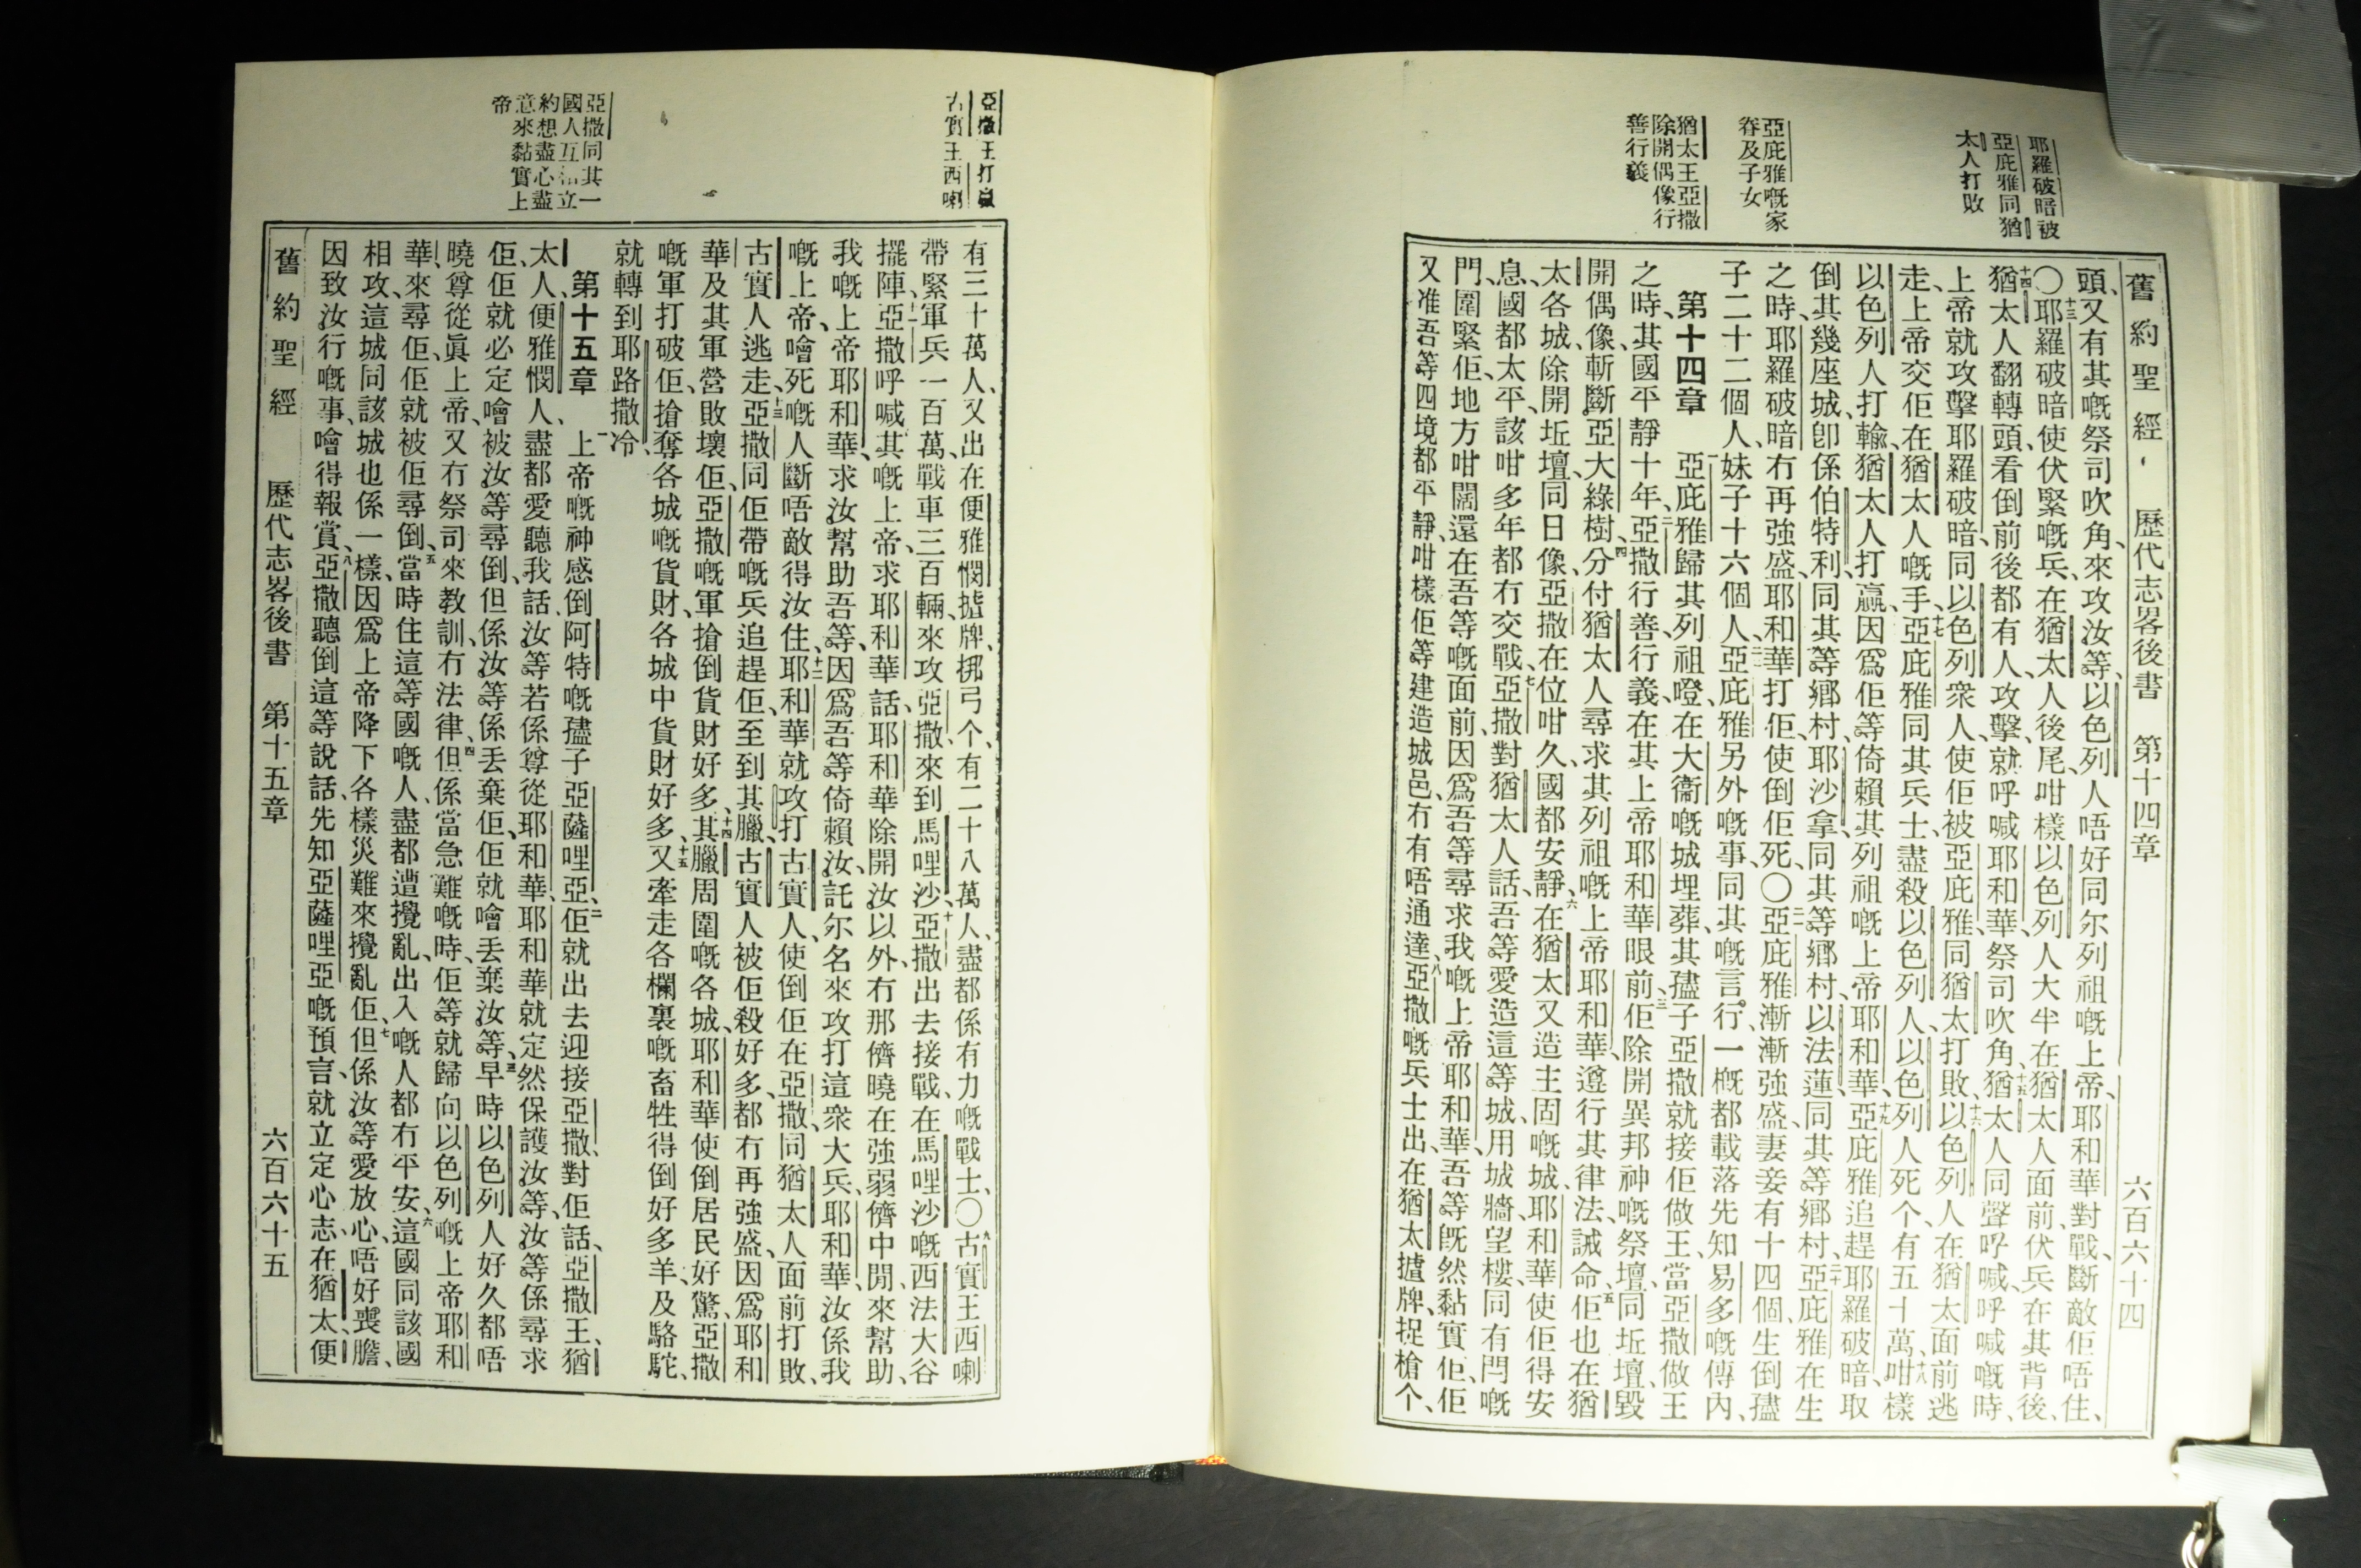 舊約聖經 歷代志畧後書 第十四章 六百六十四
耶羅破暗被
亞庇雅同猶
太人打敗
亞庇雅嘅家
眷及子女
猶太王亞撒
除開偶像行
善行義
頭、又有其嘅祭司吹角、來攻汝等、以色列人唔好同尔列祖嘅上帝、耶和華對戰、斷敵佢唔住、
〇十三耶羅破暗使伏緊嘅兵、在猶太人後尾、咁樣以色列人大半在猶太人面前、伏兵在其背後、
十四猶太人翻轉頭、看倒前後都有人、攻擊、就呼喊耶和華、祭司吹角、十五猶太人同聲呼喊、呼喊嘅時、
上帝就攻擊耶羅破暗、同以色列衆人、使佢被亞庇雅、同猶太打敗、十六以色列人在猶太面前逃
走、上帝交佢在猶太人嘅手、十七亞庇雅同其兵士、盡殺以色列人、以色列人死个、有五十萬、十八咁樣
以色列人打輸、猶太人打贏、因爲佢等倚賴其列祖嘅上帝耶和華、十九亞庇雅追趕耶羅破暗、取
倒其幾座城、卽係伯特利、同其等鄉村、耶沙拿、同其等鄉村、以法蓮、同其等鄉村、二十亞庇雅在生
之時、耶羅破暗冇再強盛、耶和華打佢、使倒佢死、〇二一亞庇雅漸漸強盛、妻妾有十四個、生倒孻
子二十二個人、妹子十六個人、二二亞庇雅另外嘅事、同其嘅言行、一概都載落先知易多嘅傳內、
第十四章 一亞庇雅歸其列祖嘅、在大衞嘅城埋葬、其孻子亞撒就接佢做王、當亞撒做王
之時、其國平靜十年、二亞撒行善、行義、在其上帝耶和華眼前、三佢除開異邦神嘅祭壇、同坵壇、毀
開偶像、斬斷亞大綠樹、四分付猶太人尋求其列祖嘅上帝耶和華、遵行其律法、誡命、五佢也在猶
太各城、除開坵壇、同日像、亞撒在位咁久、國都安靜、六在猶太又造主固嘅城、耶和華使佢得安
息、國都太平、該咁多年都冇交戰、七亞撒對猶太人話、吾等愛造這等城、用城牆、望樓、同有閂嘅
門、圍緊佢、地方咁闊、還在吾等嘅面前、因爲吾等尋求我嘅上帝耶和華、吾等既然黏實佢、佢
又准吾等四境都平靜、咁樣佢等建造城邑、冇有唔通達、八亞撒嘅兵士出、在猶太攎牌、捉槍个、
亞撒王打贏
古實王西喇
亞撒同其一
國人互相立
約想盡心盡
意來黏實上
帝
有三十萬人、又出在便雅憫攎牌、挷弓个、有二十八萬人、盡都係有力嘅戰士、〇九古實王西喇
帶緊軍兵一百萬、戰車三百輛、來攻亞撒、來到馬哩沙、十亞撒出去接戰、在馬哩沙嘅西法大谷
擺陣、十一亞撒呼喊其嘅上帝、求耶和華話、耶和華除開汝以外、冇那儕曉在強弱儕中閒、來幫助、
我嘅上帝耶和華、求汝幫助吾等、因爲吾等倚賴汝、託尔名來攻打這衆大兵、耶和華、汝係我
嘅上帝、噲死嘅人斷唔敵得汝住、十二耶和華就攻打古實人、使倒佢在亞撒、同猶太人面前打敗、
古實人逃走、十三亞撒同佢帶嘅兵追趕佢、至到其臘、古實人被佢殺好多、都冇再強盛、因爲耶和
華及其軍營敗壞佢、亞撒嘅軍搶倒貨財好多、十四其臘周圍嘅各城、耶和華使倒居民好驚、亞撒
嘅軍打破佢、搶奪各城嘅貨財、各城中貨財好多、十五又牽走各欄裏嘅畜牲、得倒好多羊、及駱駝、
就轉到耶路撒冷、
第十五章 一上帝嘅神感倒阿特嘅孻子亞薩哩亞、二佢就出去迎接亞撒、對佢話、亞撒王、猶
太人、便雅憫人、盡都愛聽我話、汝等若係尊從耶和華、耶和華就定然保護汝等、汝等係尋求
佢、佢就必定噲被汝等尋倒、但係汝等係丟棄佢、佢就噲丟棄汝等、三早時以色列人好久都唔
曉尊從眞上帝、又冇祭司來教訓、冇法律、四但係當急難嘅時、佢等就歸向以色列嘅上帝耶和
華、來尋佢、佢就被佢尋倒、五當時住這等國嘅人、盡都遭攪亂、出入嘅人都冇平安、六這國同該國
相攻、這城同該城也係一樣、因爲上帝降下各樣災難來攪亂佢、七但係汝等愛放心、唔好喪膽、
因致汝行嘅事、噲得報賞、八亞撒聽倒這等說話、先知亞薩哩亞嘅預言、就立定心志、在猶太、便
舊約聖經 歷代志畧後書 第十五章 六百六十五